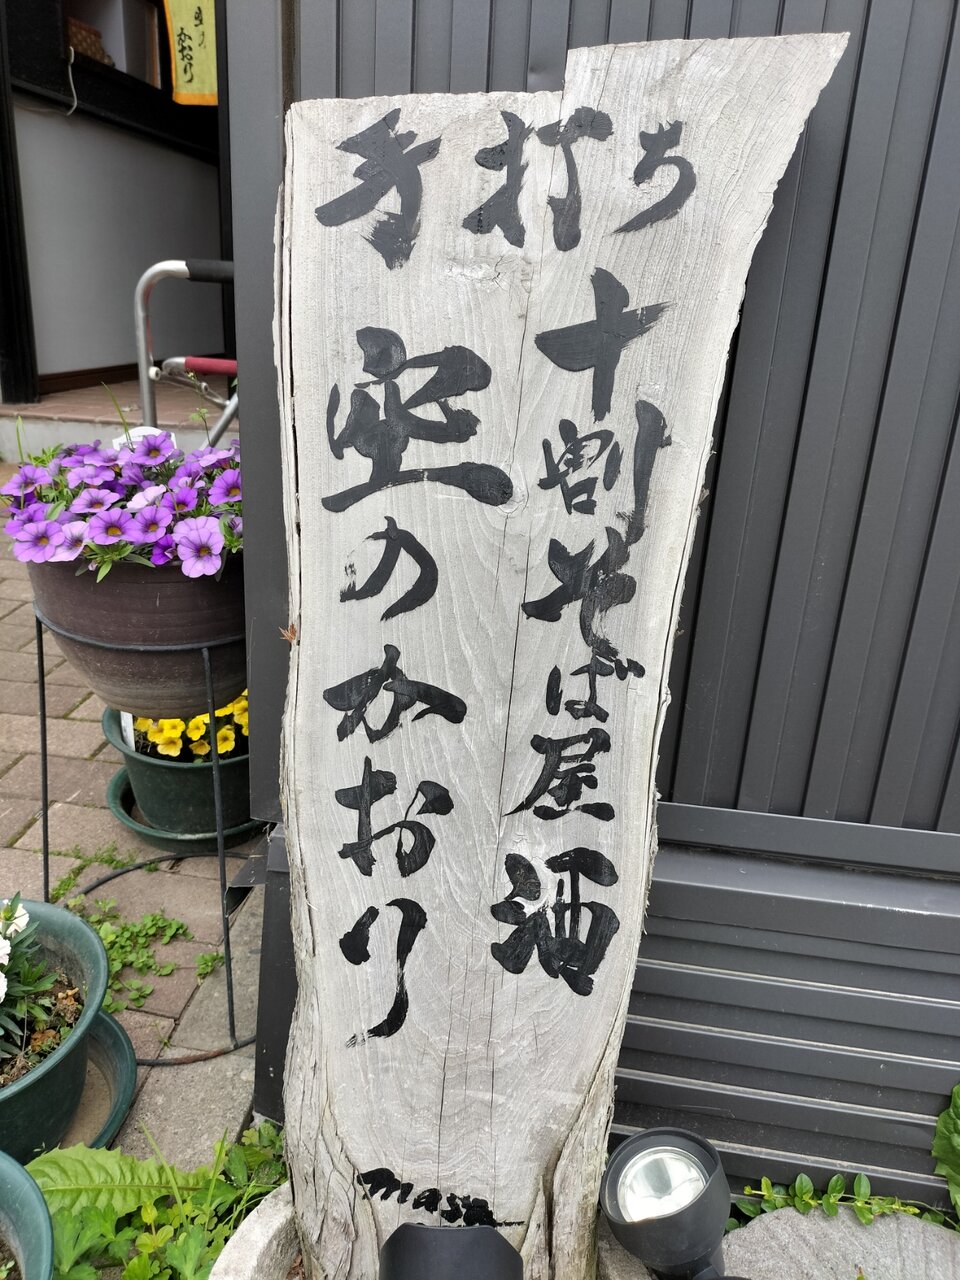 手打ち
十割そば屋酒
空のかおり
masa
かおり